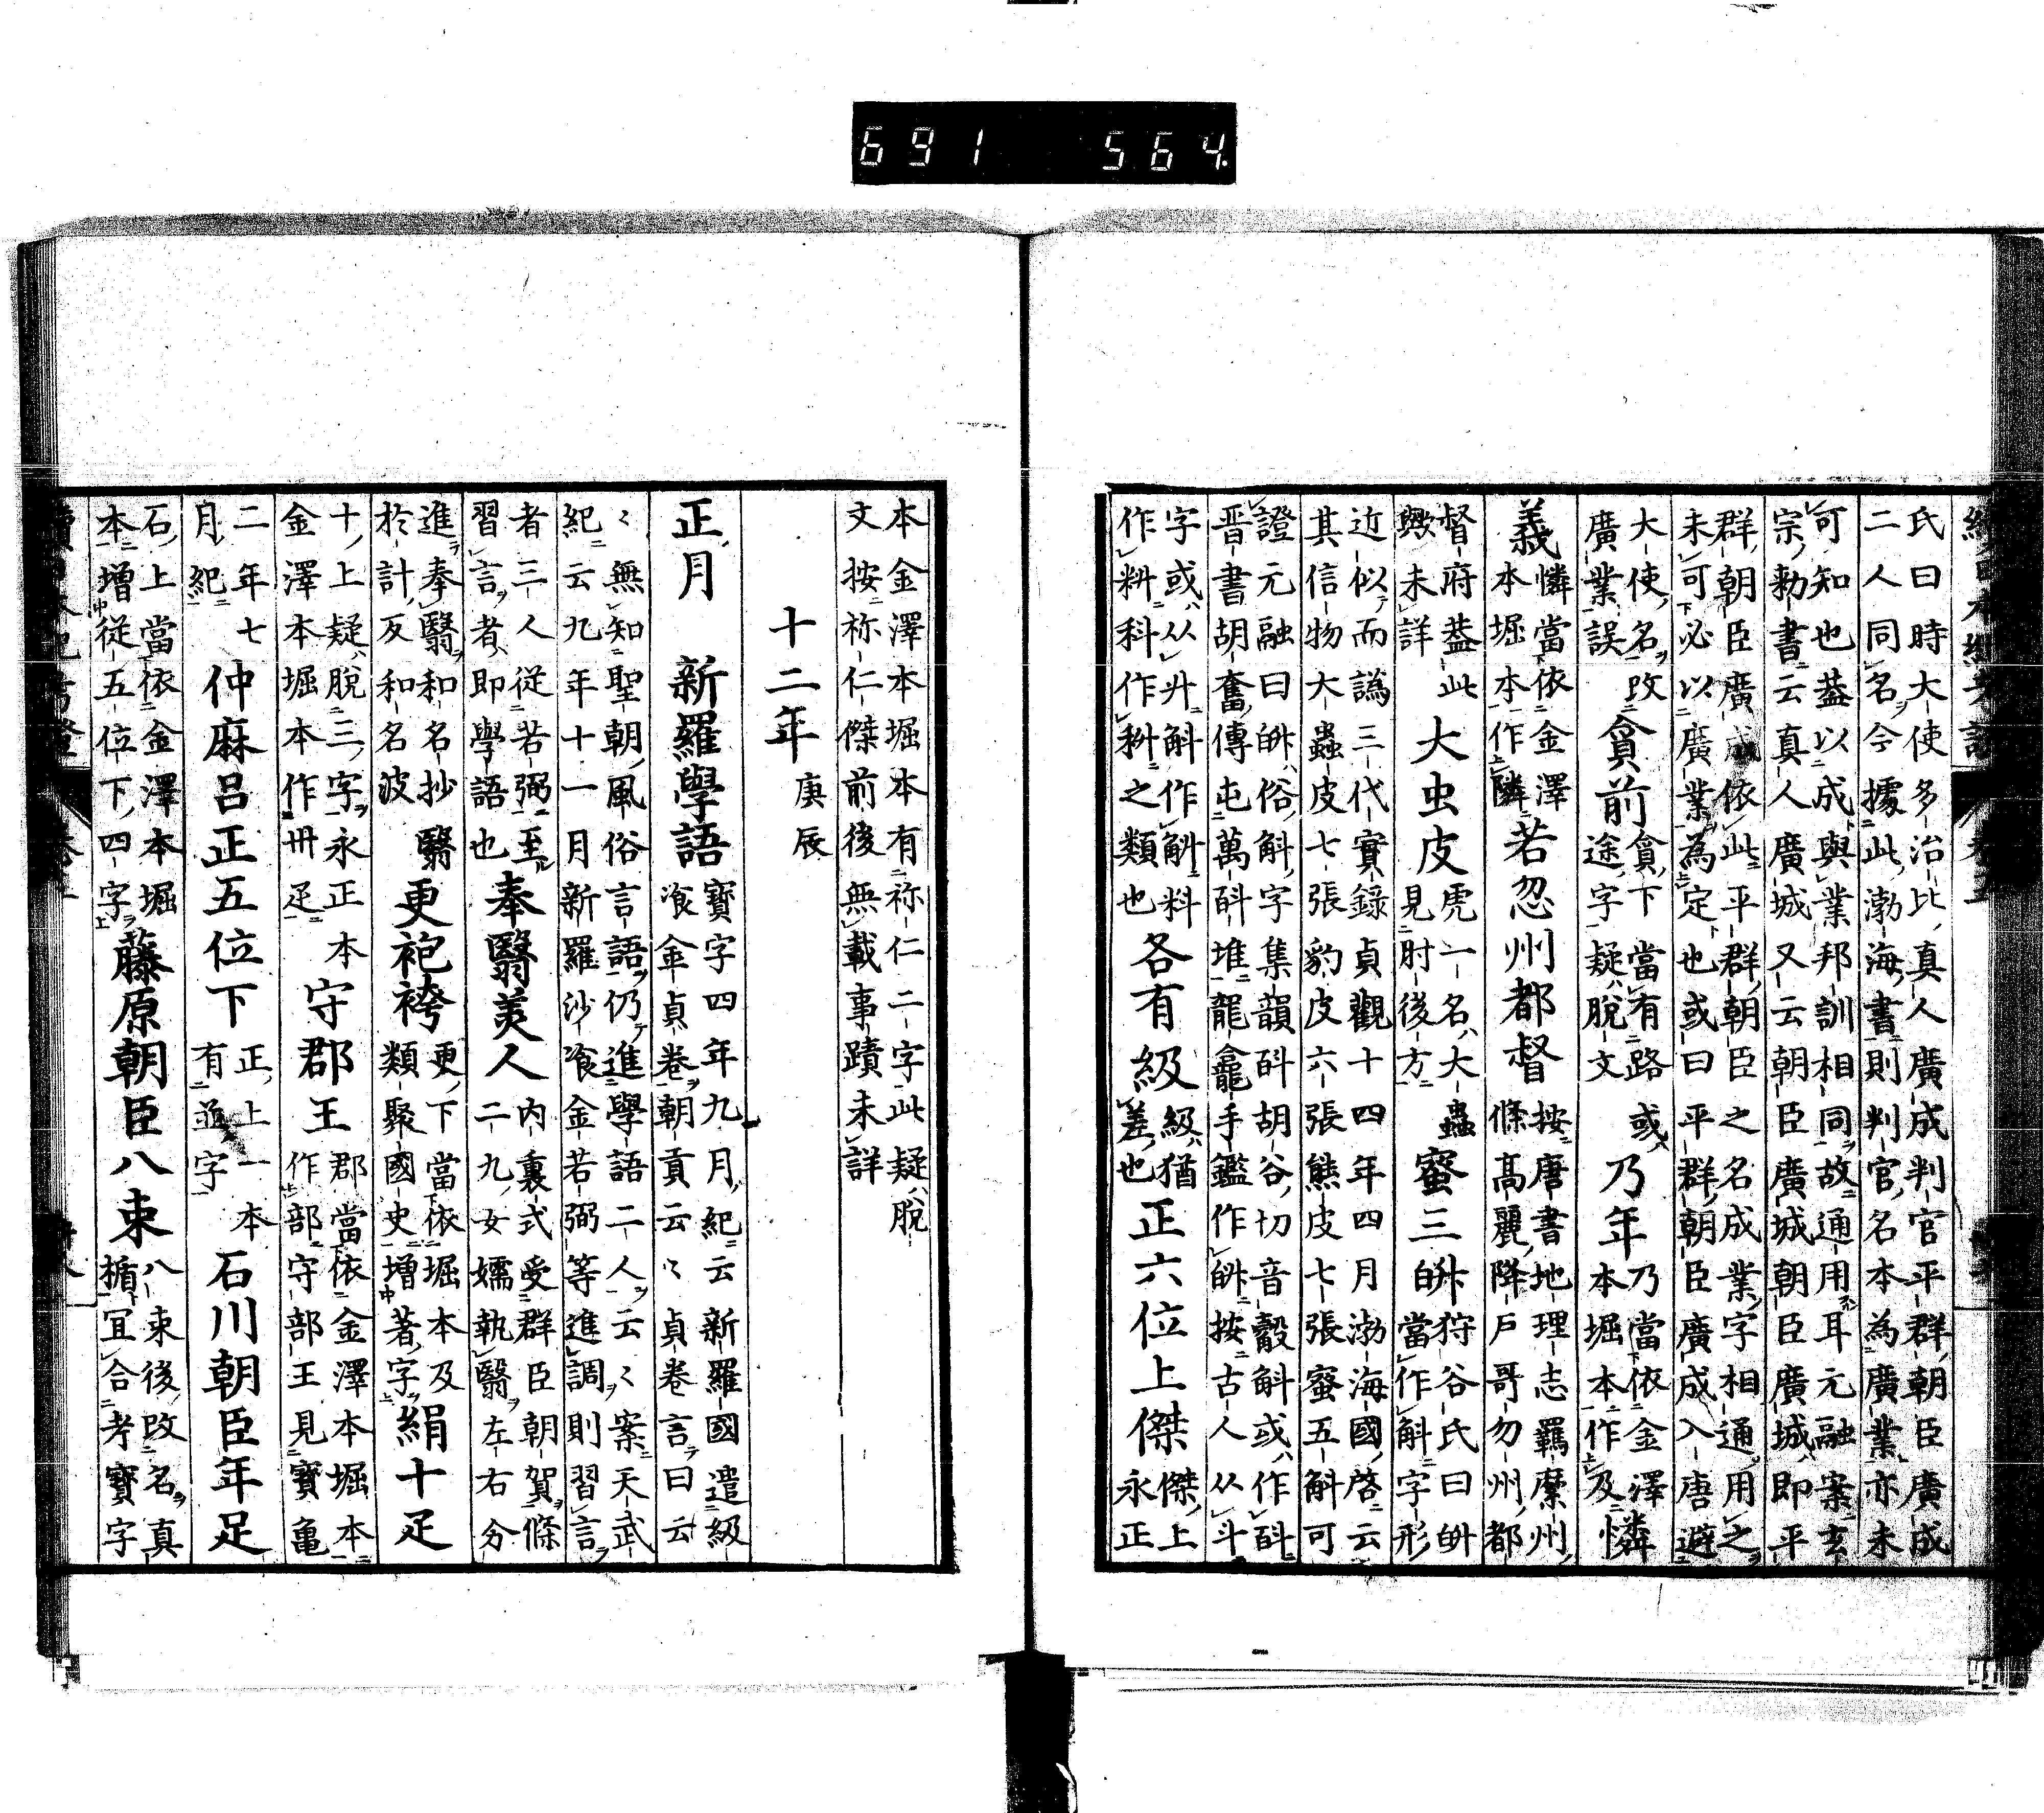 691 564.
氏曰時大使多治比真人廣成判官平群朝臣廣成
二人同名今據此渤海書則判官名本為廣業亦未
可知也蓋以成與業邦訓相同故通用耳元融案玄
宗勅書云真人廣城又云朝臣廣城朝臣廣城即平
群朝臣廣成依此平群朝臣之名成業字相通用之
未可必以廣業為定也或曰平群朝臣廣成入唐避
大使名改
廣業誤
貪前
貪下當有路
途字疑脫文
或
乃年
乃當依金澤
本堀本作及
憐
義
憐當依金澤
本堀本作隣
若忽州都督
按唐書地理志羈縻州
條高麗降戶哥勿州都
督府蓋此
歟未詳
大虫皮
虎一名大蟲
見肘後方
蜜三㪵
狩谷氏曰㪵
㪵當作斛字形
近似而譌三代實錄貞觀十四年四月渤海國啓云
其信物大蟲皮七張豹皮六張熊皮七張蜜五斛可
證元融曰㪵俗斛字集韻㪵胡谷切音縠斛或作㪵
晉書胡奮傳屯萬㪵堆龍龕手鑑作㪵按古人从斗
字或从升斛作㪵料
作䉼科作䅓之類也
各有級
級猶
差也
正六位上傑
傑上
永正
本金澤本堀本有祢仁二字此疑脫
文按祢仁傑前後無載事蹟未詳
十二年
庚辰
正月
新羅學語
寶字四年九月紀云新羅國遣級
飡金貞卷朝貢云〻貞卷言曰云
〻無知聖朝風俗言語仍進學語二人云〻案天武
紀云九年十一月新羅沙飡金若弼等進調則習言
者三人從若弼至
習言者即學語也
奉翳美人
內裏式受群臣朝賀條
二九女孺執翳左右分
進奉翳和名抄翳
於計反和名波
更袍袴
更下當依堀本及
類聚國史增著字
絹十疋
十上疑脫三字永正本
金澤本堀本作卅疋
守郡王
郡當依金澤本堀本
作部守部王見寶亀
二年七
月紀
仲麻呂正五位下
正上一本
有並字
石川朝臣年足
石上當依金澤本堀
本增從五位下四字
藤原朝臣八束
八束後改名真
楯宜合考寶字